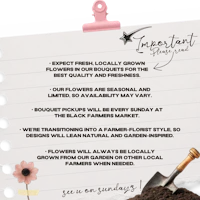 Important
please read
- EXPECT FRESH, LOCALLY GROWN
FLOWERS IN OUR BOUQUETS FOR THE
BEST QUALITY AND FRESHNESS.
- OUR FLOWERS ARE SEASONAL AND
LIMITED, SO AVAILABILITY MAY VARY.
- BOUQUET PICKUPS WILL BE EVERY SUNDAY AT
THE BLACK FARMERS MARKET.
- WE'RE TRANSITIONING INTO A FARMER-FLORIST STYLE, SO
DESIGNS WILL LEAN NATURAL AND GARDEN-INSPIRED.
- FLOWERS WILL ALWAYS BE LOCALLY
GROWN FROM OUR GARDEN OR OTHER LOCAL
FARMERS WHEN NEEDED.
see u on sundays!